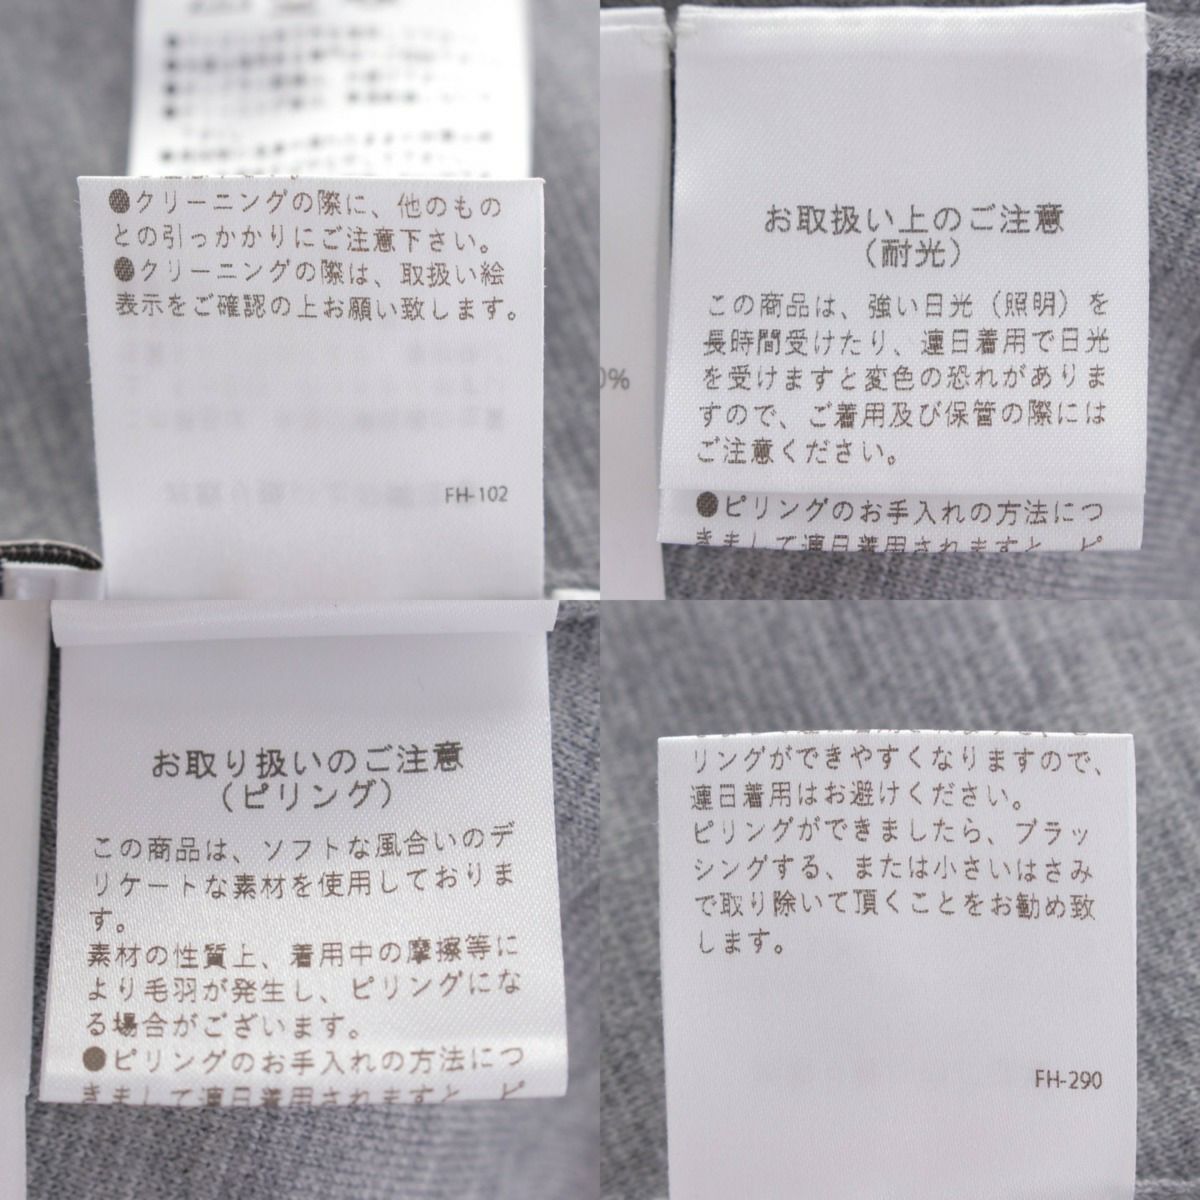 ●クリーニングの際に、他のもの
との引っかかりにご注意下さい。
●クリーニングの際は、取扱い絵
表示をご確認の上お願い致します。
FH-102
お取扱い上のご注意
（耐光）
この商品は、強い日光（照明）を
長時間受けたり、連日着用で日光
を受けますと変色の恐れがありま
すので、ご着用及び保管の際には
ご注意ください。
●ピリングのお手入れの方法につ
きまして連日着用されますと、ピ
0%
お取り扱いのご注意
（ピリング）
この商品は、ソフトな風合いのデ
リケートな素材を使用しておりま
す。
素材の性質上、着用中の摩擦等に
より毛羽が発生し、ピリングにな
る場合がございます。
●ピリングのお手入れの方法につ
きまして連日着用されますと、ピ
リングができやすくなりますので、
連日着用はお避けください。
ピリングができましたら、ブラッ
シングする、または小さいはさみ
で取り除いて頂くことをお勧め致
します。
FH-290